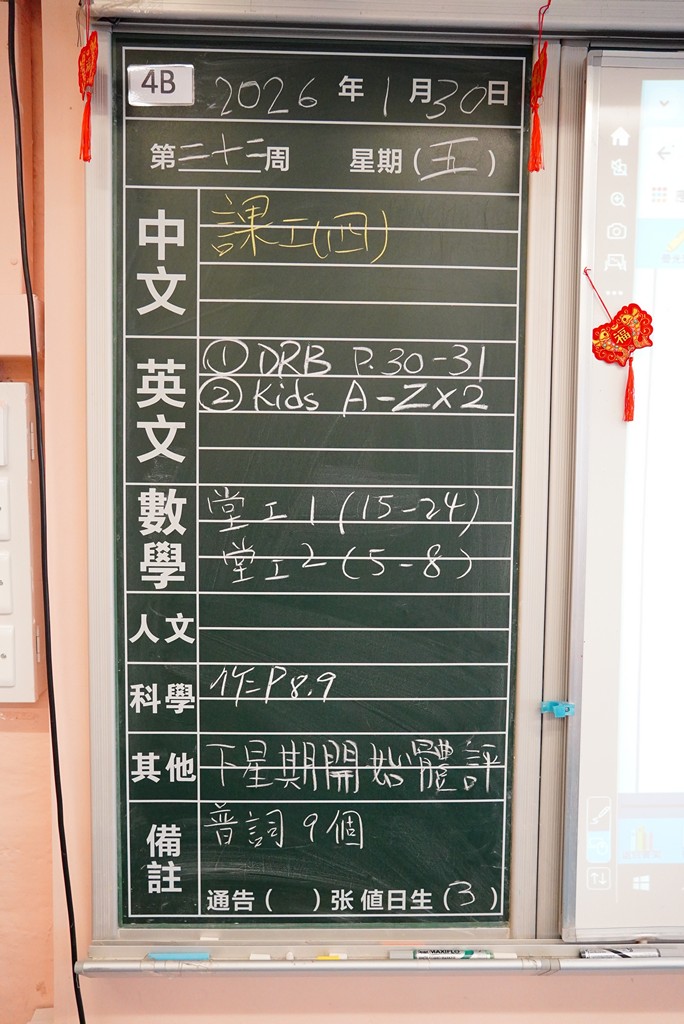 4B 2026年1月30日
第二十二周 星期(五)
中文
課工(四)
英文
① DRB P.30-31
② Kids A-Z×2
數學
堂工1(15-24)
堂工2(5-8)
人文
科學
作P8.9
其他
下星期開始體評
備註
普詞9個
通告( )张 值日生(3)
福
MAXIFLO